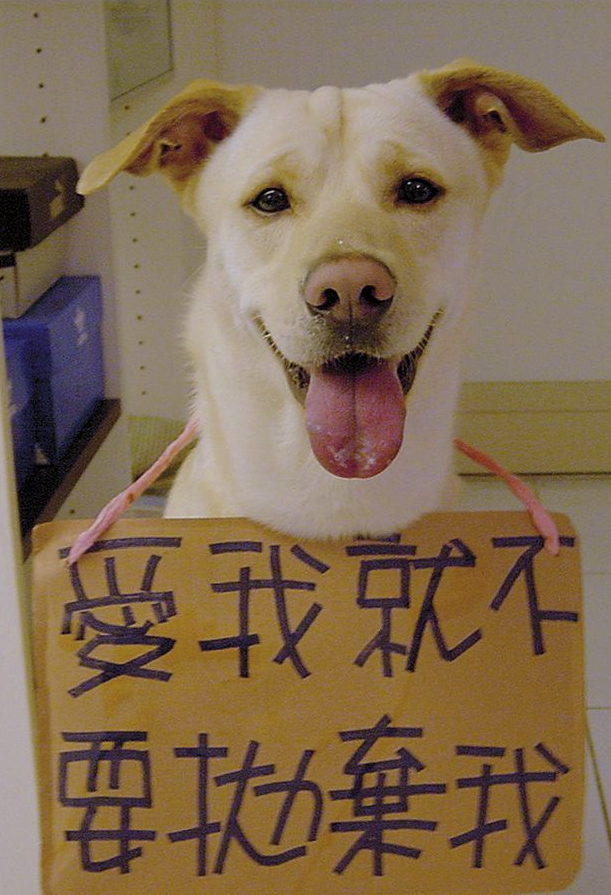 愛我就不
要拋棄我